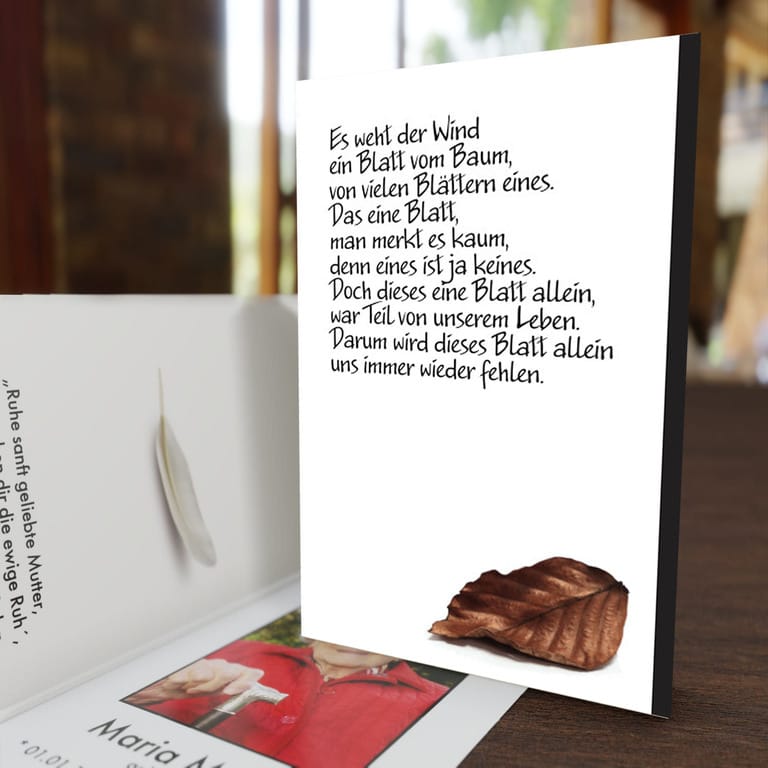 Es weht der Wind
ein Blatt vom Baum,
von vielen Blättern eines.
Das eine Blatt,
man merkt es kaum,
denn eines ist ja keines.
Doch dieses eine Blatt allein,
war Teil von unserem Leben.
Darum wird dieses Blatt allein
uns immer wieder fehlen.
„Ruhe sanft geliebte Mutter,
dir die ewige Ruh´,
Maria
*01.01.